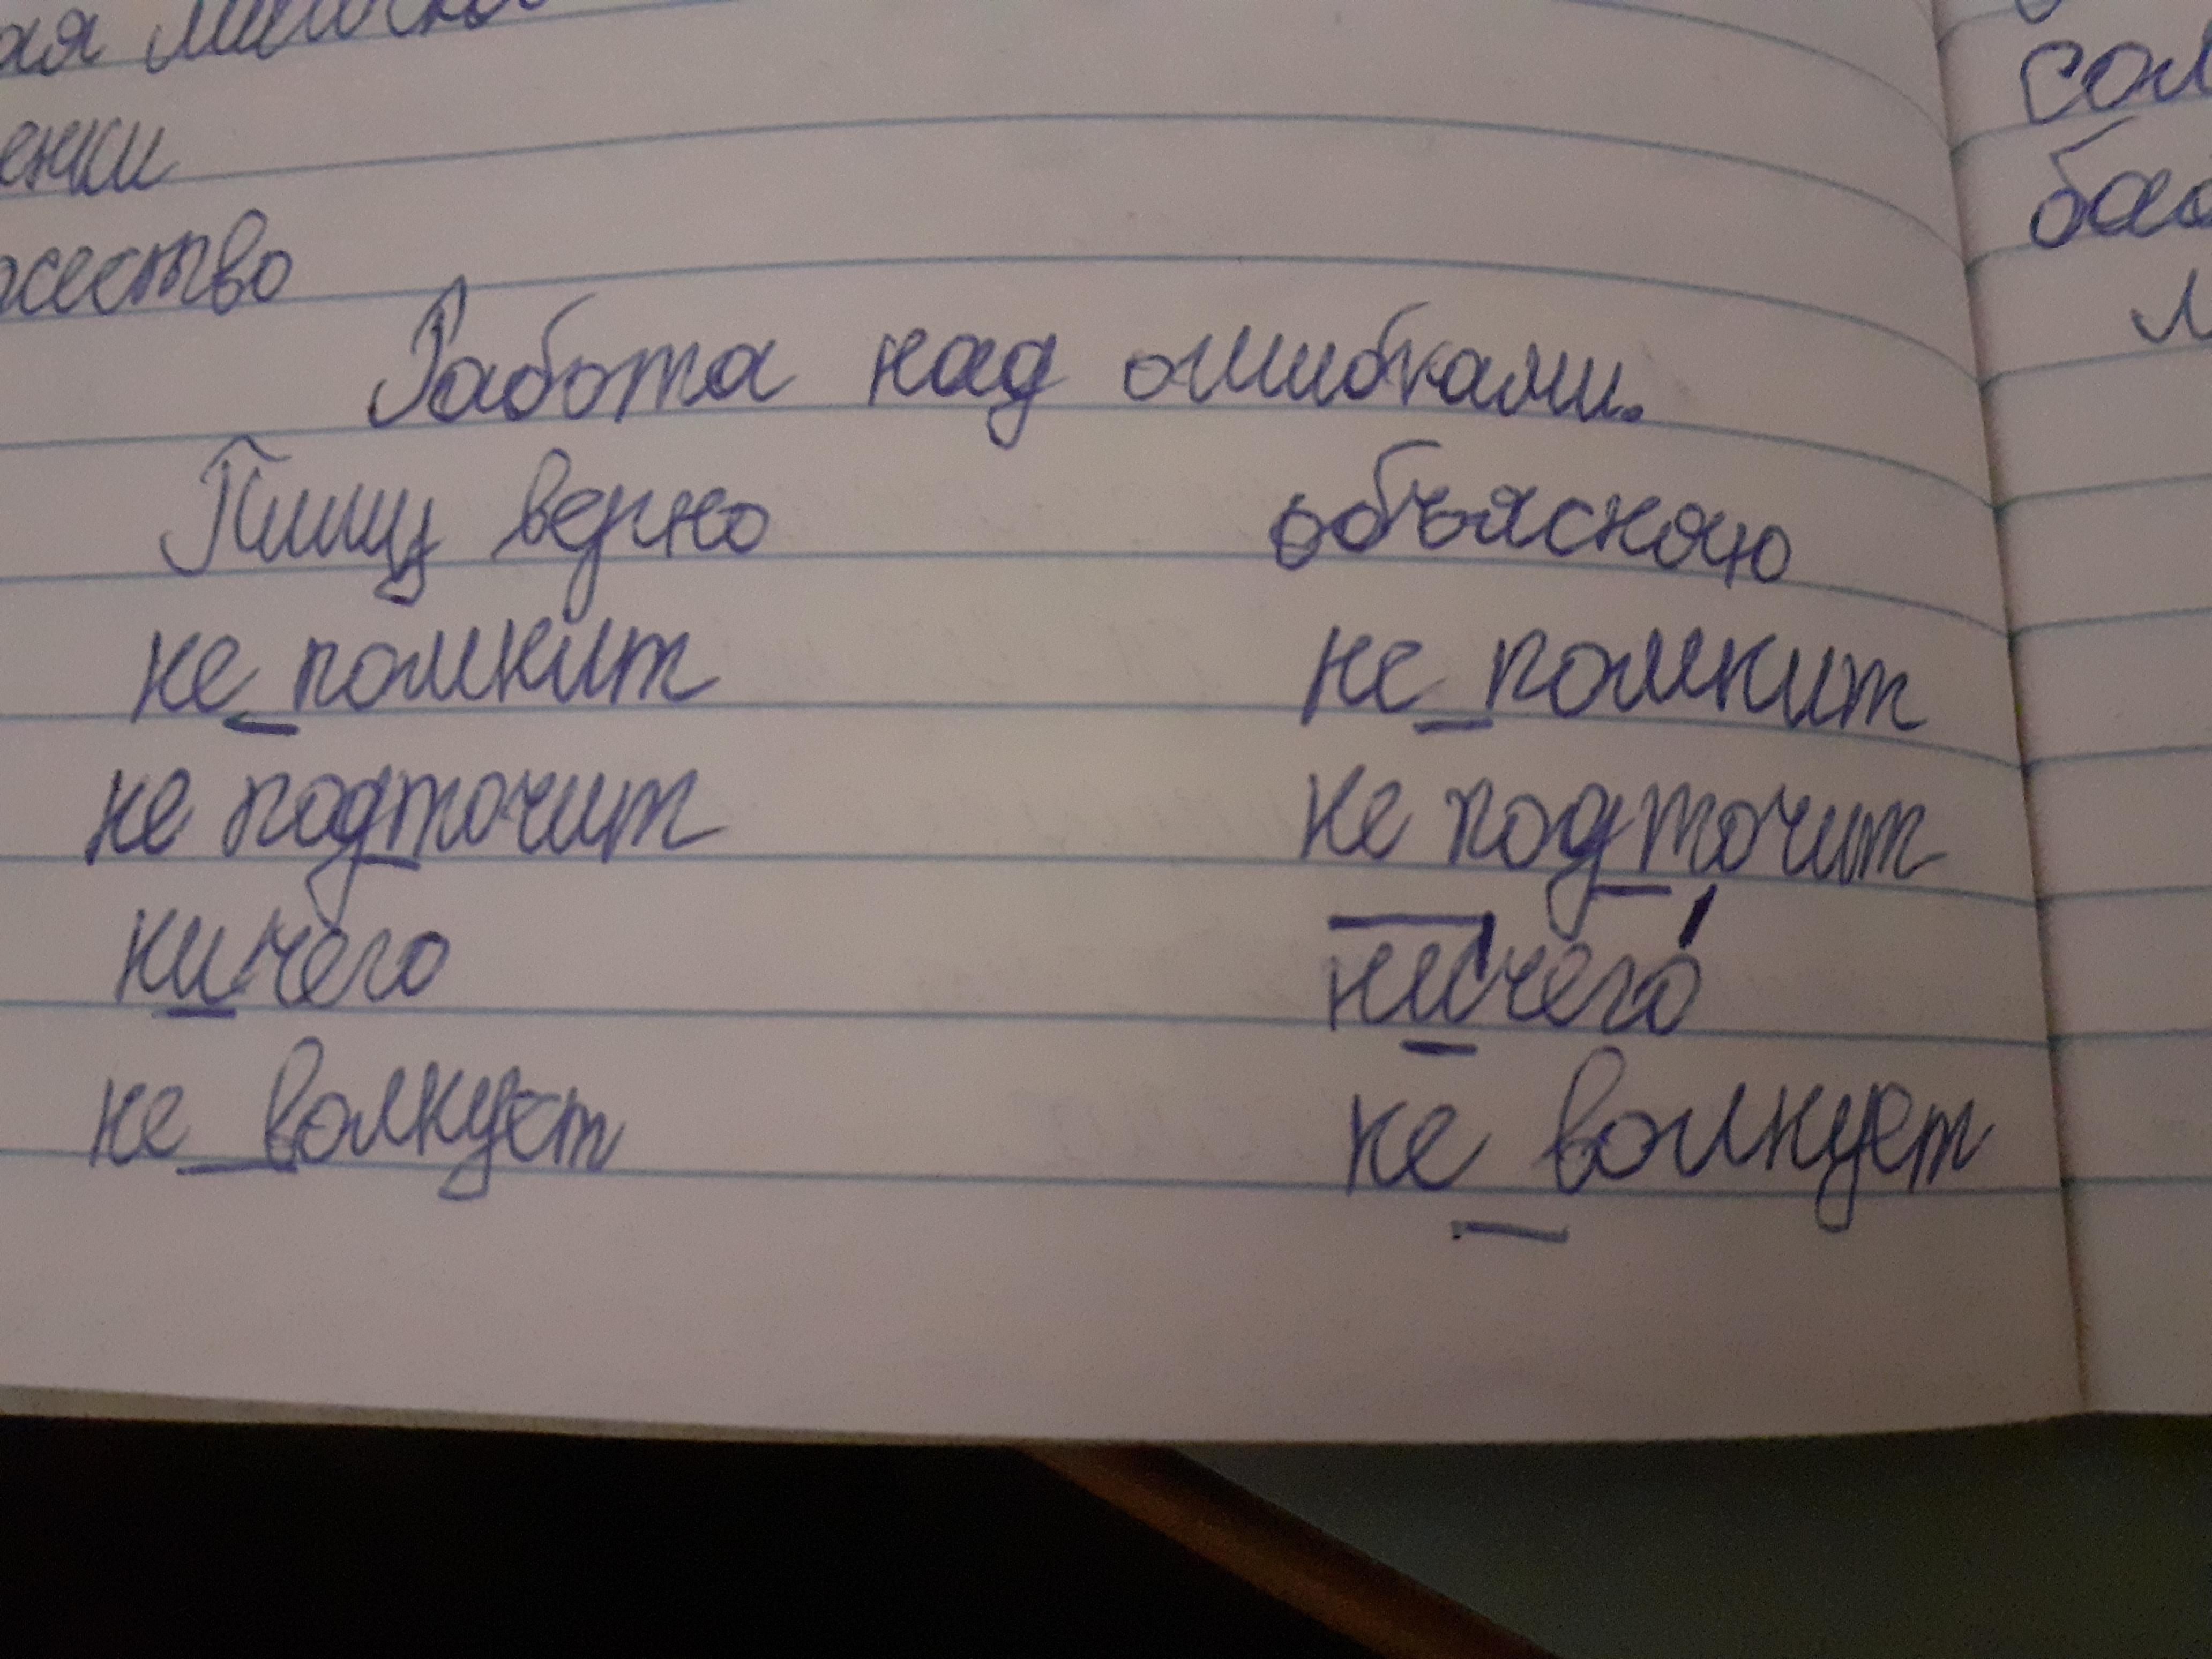 Работа над ошибками.
Пишу верно объясняю
не помнит не помнит
не подточит не подточит
ничего ничего
не волнует не волнует